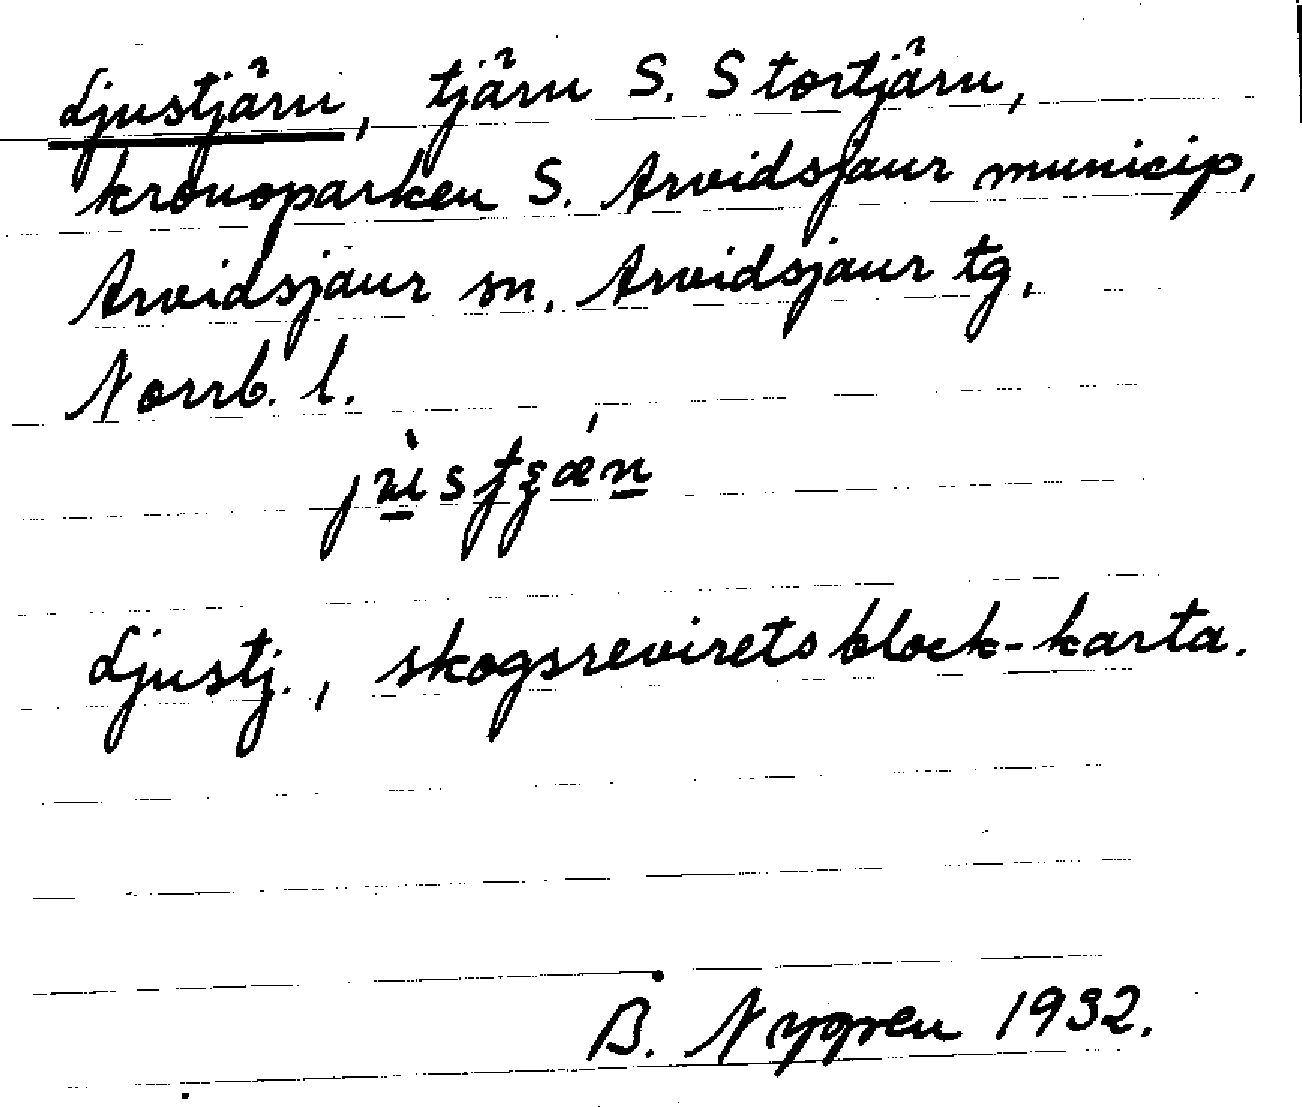 Ljustjärn, tjärn S. Stortjärn,
kronoparken S. Arvidsjaur municip,
Arvidsjaur sn, Arvidsjaur tg,
Norrb. l.
Ljustj., skogsrevirets block-karta.
B. Nygren 1932.